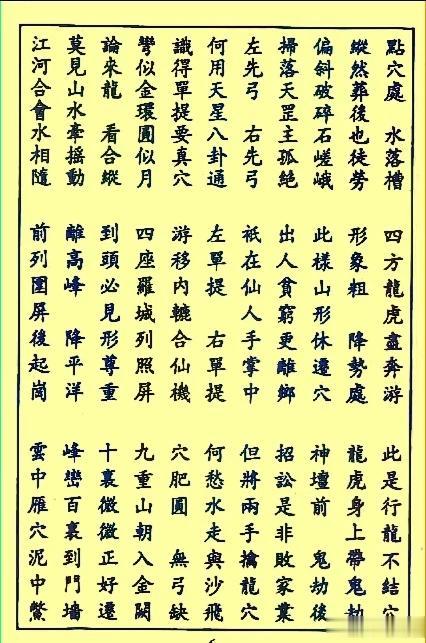 點穴處　水落槽　四方龍虎盡奔游　此是行龍不結穴
縱然葬後也徒勞　形象粗　降勢處　龍虎身上帶鬼劫
偏斜破碎石嵯峨　此樣山形休遷穴　神壇前　鬼劫後
掃落天罡主孤絕　出人貧窮更離鄉　招訟是非敗家業
左先弓　右先弓　祇在仙人手掌中　但將兩手擒龍穴
何用天星八卦通　左單提　右單提　何愁水走與沙飛
識得單提要真穴　游移內轆合仙機　穴肥圓　無弓缺
彎似金環圓似月　四座羅城列照屏　九重山朝入金闕
論來龍　看合縱　到頭必見形尊重　十裏微微正好遷
莫見山水牽搖動　離高峰　降平洋　峰巒百裏到門墻
江河合會水相隨　前列圍屏後起崗　雲中雁穴泥中鱉